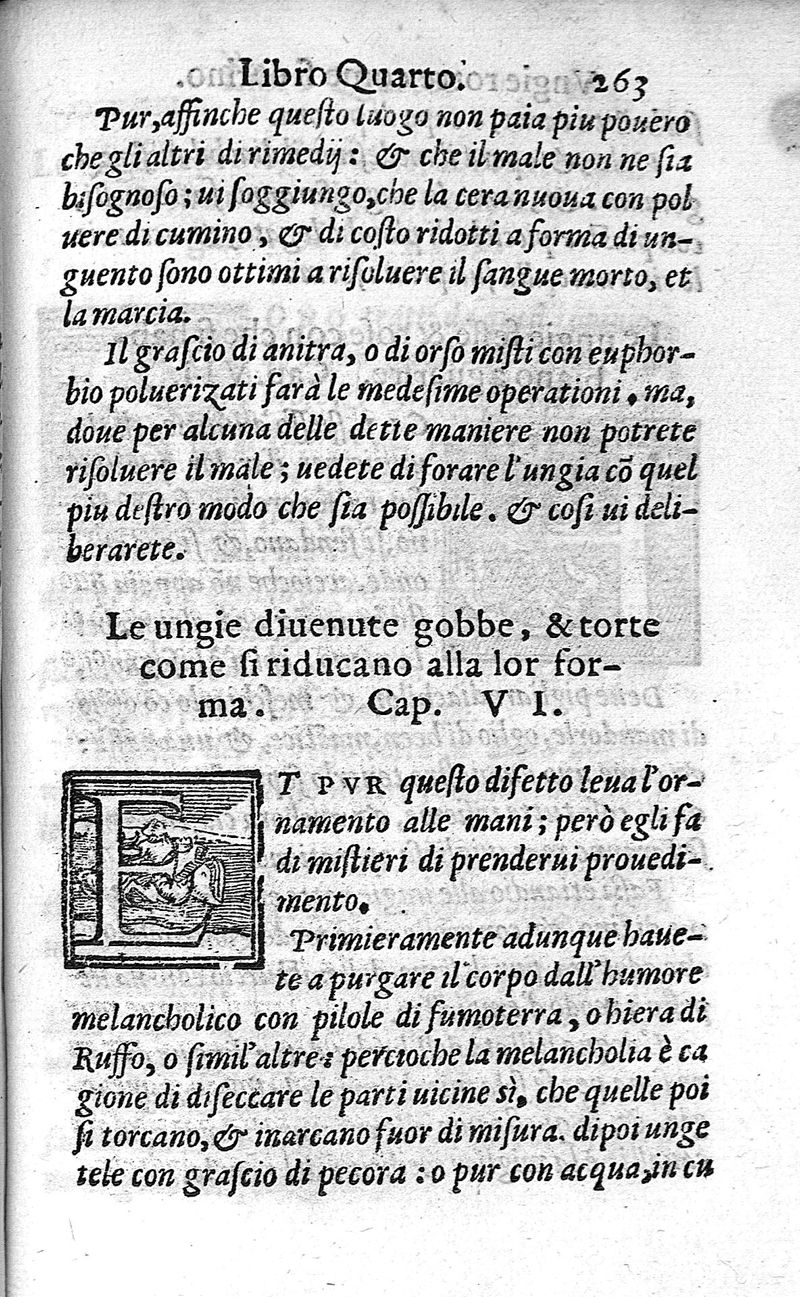 Libro Quarto. 263
Pur, affinche questo luogo non paia piu pouero
che gli altri di rimedij: & che il male non ne sia
bisognoso; ui soggiungo, che la cera nuoua con pol
uere di cumino, & di costo ridotti a forma di un-
guento sono ottimi a risoluere il sangue morto, et
la marcia.
Il grascio di anitra, o di orso misti con euphor-
bio poluerizati farà le medesime operationi. ma,
doue per alcuna delle dette maniere non potrete
risoluere il male; uedete di forare l'ungia cō quel
piu destro modo che sia possibile. & cosi ui deli-
berarete.
Le ungie diuenute gobbe, & torte
come si riducano alla lor for-
ma. Cap. VI.
ET PVR questo difetto leua l'or-
namento alle mani; però egli fa
di mistieri di prenderui prouedi-
mento.
Primieramente adunque haue-
te a purgare il corpo dall'humore
melancholico con pilole di fumoterra, o hiera di
Ruffo, o simil'altre: percioche la melancholia è ca
gione di diseccare le parti uicine sì, che quelle poi
si torcano, & inarcano fuor di misura. dipoi unge
tele con grascio di pecora: o pur con acqua, in cu